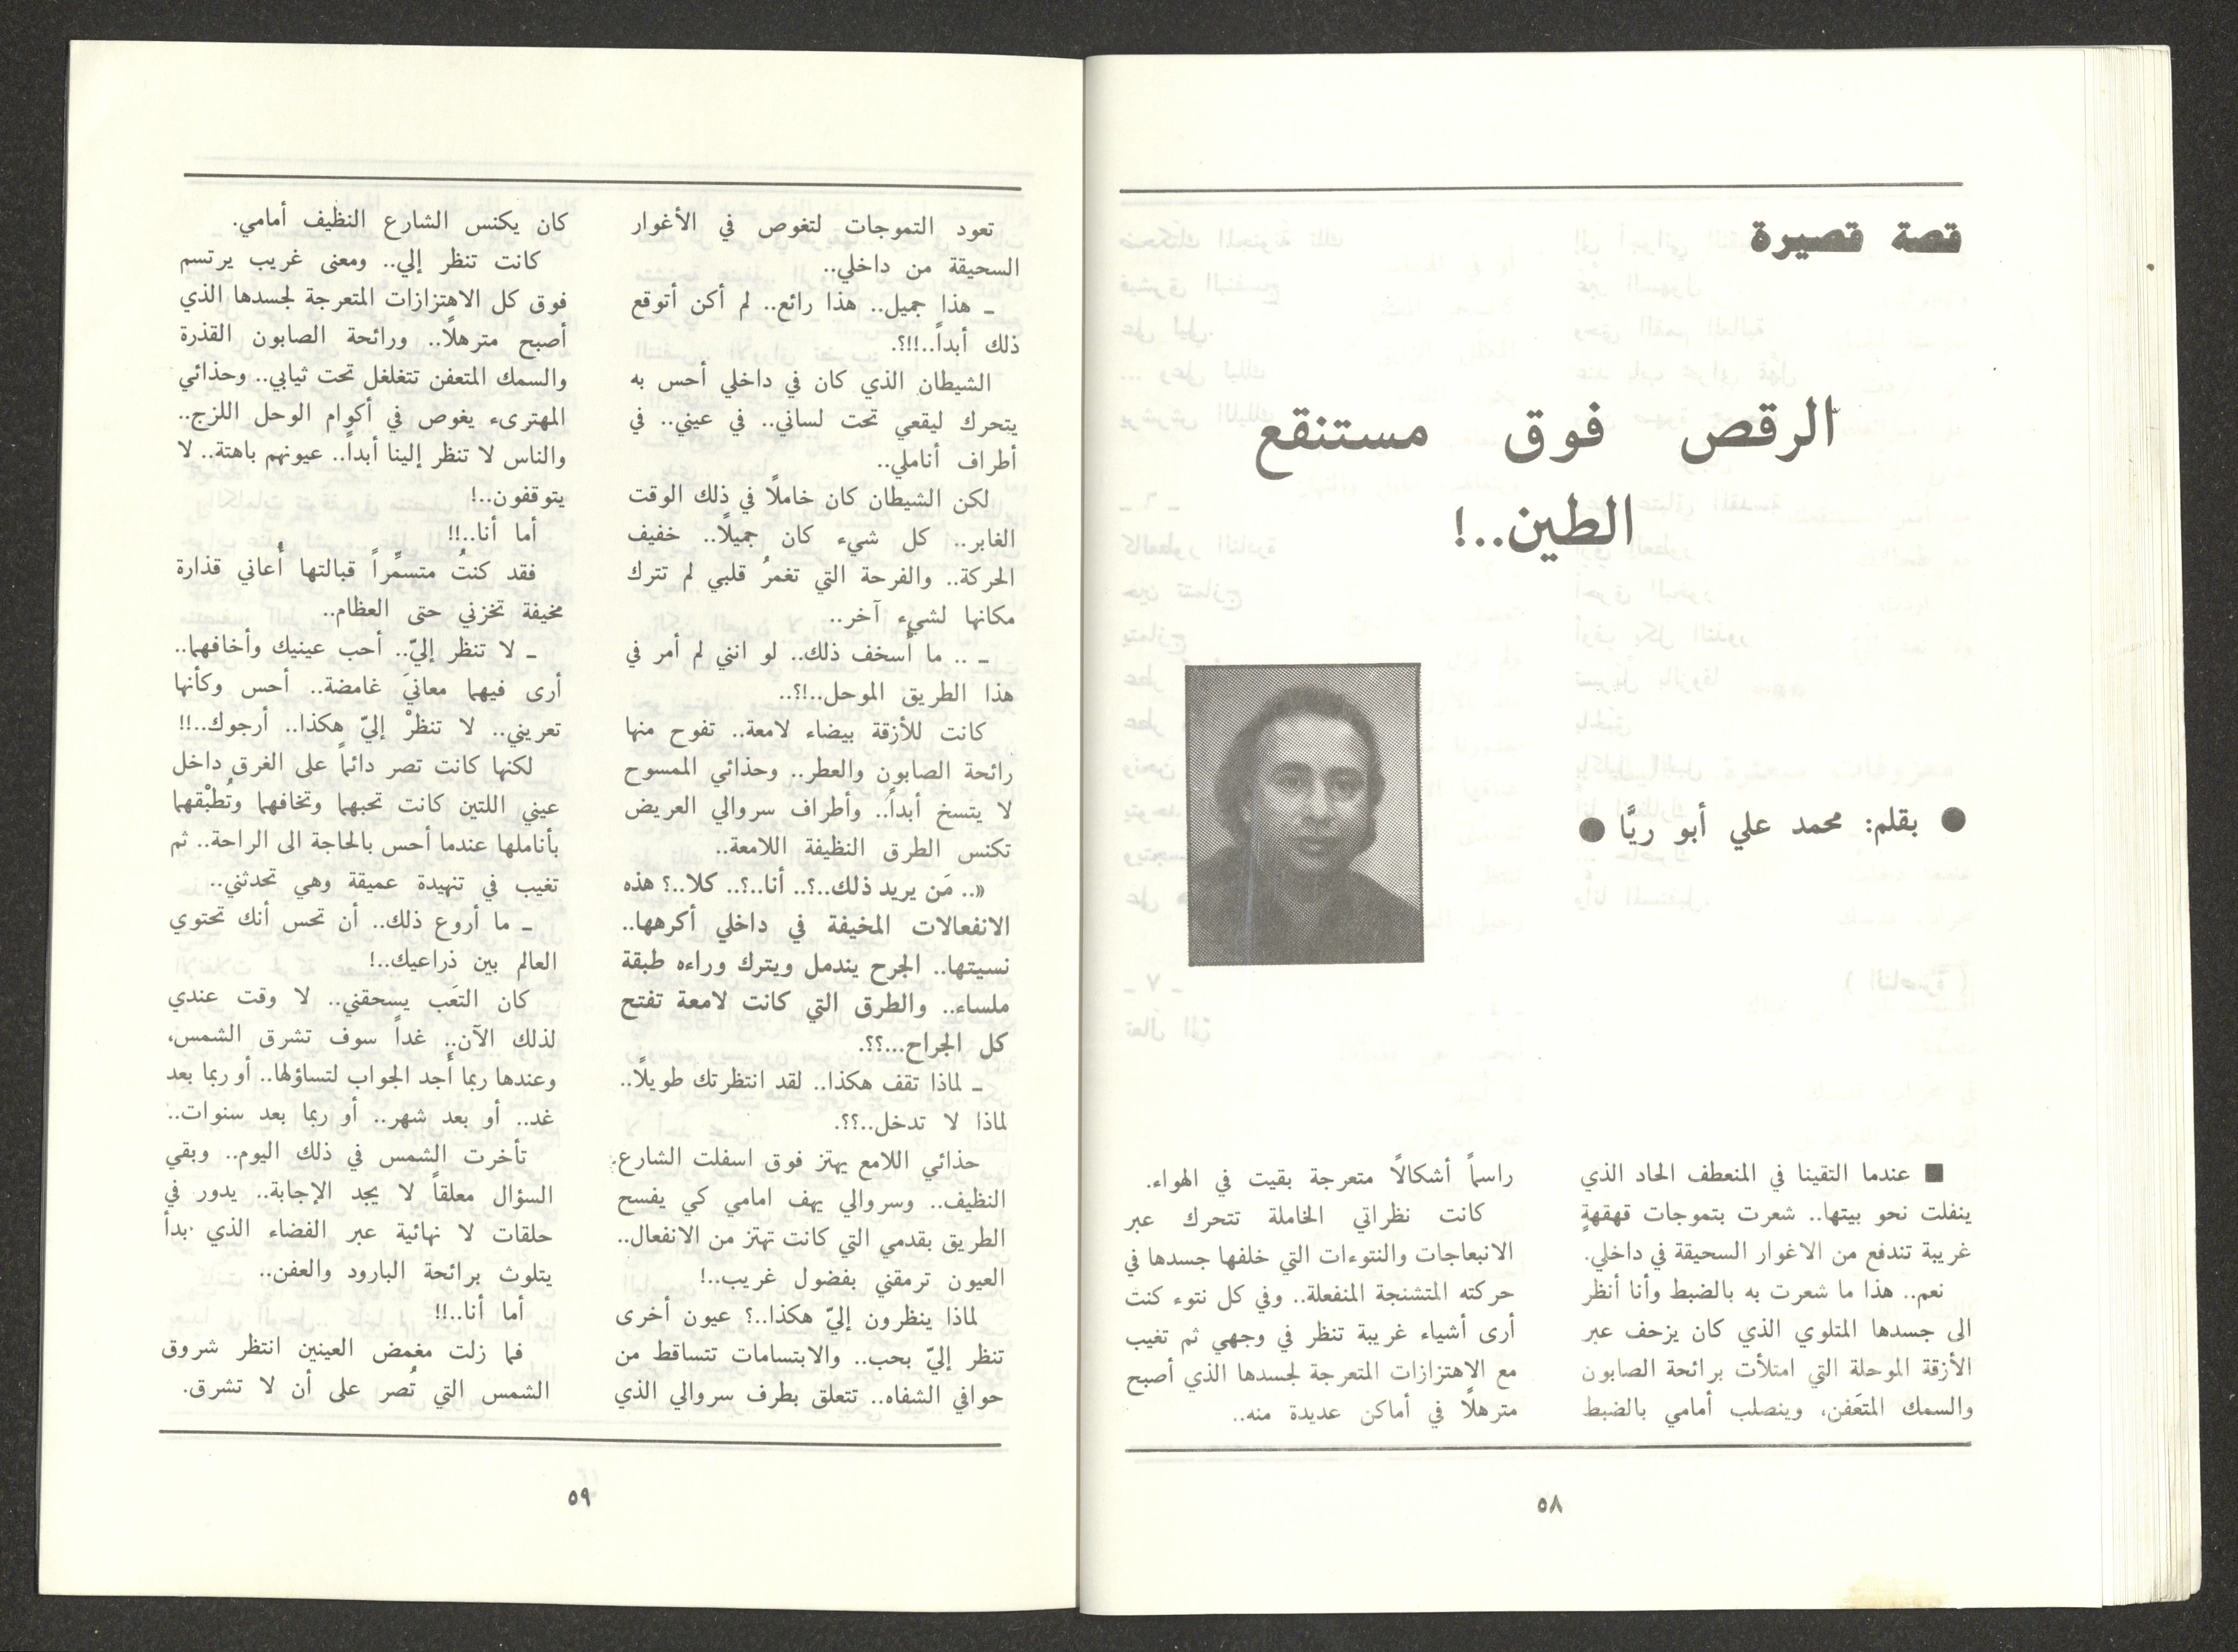 قصة قصيرة
الرقص فوق مستنقع
الطين..!
● بقلم: محمد علي أبو ريَّا ●
■ عندما التقينا في المنعطف الحاد الذي
ينفلت نحو بيتها.. شعرت بتموجات قهقهةٍ
غريبة تندفع من الاغوار السحيقة في داخلي.
نعم.. هذا ما شعرت به بالضبط وأنا أنظر
الى جسدها المتلوي الذي كان يزحف عبر
الأزقة الموحلة التي امتلأت برائحة الصابون
والسمك المتعَفن، وينصلب أمامي بالضبط
راسماً أشكالًا متعرجة بقيت في الهواء.
كانت نظراتي الخاملة تتحرك عبر
الانبعاجات والنتوءات التي خلفها جسدها في
حركته المتشنجة المنفعلة.. وفي كل نتوء كنت
أرى أشياء غريبة تنظر في وجهي ثم تغيب
مع الاهتزازات المتعرجة لجسدها الذي أصبح
مترهلًا في أماكن عديدة منه..
٥٨
تعود التموجات لتغوص في الأغوار
السحيقة من داخلي..
ـ هذا جميل.. هذا رائع.. لم أكن أتوقع
ذلك أبداً..!!؟.
الشيطان الذي كان في داخلي أحس به
يتحرك ليقعي تحت لساني.. في عيني.. في
أطراف أناملي..
لكن الشيطان كان خاملًا في ذلك الوقت
الغابر.. كل شيء كان جميلًا.. خفيف
الحركة.. والفرحة التي تغمرُ قلبي لم تترك
مكانها لشيء آخر..
ـ .. ما أسخف ذلك.. لو انني لم أمر في
هذا الطريق الموحل..!؟..
كانت للأزقة بيضاء لامعة.. تفوح منها
رائحة الصابون والعطر.. وحذائي الممسوح
لا يتسخ أبداً.. وأطراف سروالي العريض
تكنس الطرق النظيفة اللامعة..
«.. مَن يريد ذلك..؟.. أنا..؟.. كلا..؟ هذه
الانفعالات المخيفة في داخلي أكرهها..
نسيتها.. الجرح يندمل ويترك وراءه طبقة
ملساء.. والطرق التي كانت لامعة تفتح
كل الجراح...؟؟.
ـ لماذا تقف هكذا.. لقد انتظرتك طويلًا..
لماذا لا تدخل..؟؟.
حذائي اللامع يهتز فوق اسفلت الشارع
النظيف.. وسروالي يهف امامي كي يفسح
الطريق بقدمي التي كانت تهتز من الانفعال..
العيون ترمقني بفضول غريب..!
لماذا ينظرون إليّ هكذا..؟ عيون أخرى
تنظر إليّ بحب.. والابتسامات تتساقط من
حوافي الشفاه.. تتعلق بطرف سروالي الذي
كان يكنس الشارع النظيف أمامي.
كانت تنظر إلي.. ومعنى غريب يرتسم
فوق كل الاهتزازات المتعرجة لجسدها الذي
أصبح مترهلًا.. ورائحة الصابون القذرة
والسمك المتعفن تتغلغل تحت ثيابي.. وحذائي
المهترىء يغوص في أكوام الوحل اللزج..
والناس لا تنظر إلينا أبداً.. عيونهم باهتة.. لا
يتوقفون..!
أما أنا..!!
فقد كنتُ متسمِّراً قبالتها أُعاني قذارة
مخيفة تخزني حتى العظام..
ـ لا تنظر إليّ.. أحب عينيك وأخافهما..
أرى فيهما معانيَ غامضة.. أحس وكأنها
تعريني.. لا تنظرْ إليّ هكذا.. أرجوك..!!
لكنها كانت تصر دائماً على الغرق داخل
عيني اللتين كانت تحبهما وتخافهما وتُطبْقهما
بأناملها عندما أحس بالحاجة الى الراحة.. ثم
تغيب في تنهيدة عميقة وهي تحدثني..
ـ ما أروع ذلك.. أن تحس أنك تحتوي
العالم بين ذراعيك..!
كان التعَب يسحقني.. لا وقت عندي
لذلك الآن.. غداً سوف تشرق الشمس،
وعندها ربما أجد الجواب لتساؤلها.. أو ربما بعد
غد.. أو بعد شهر.. أو ربما بعد سنوات..
تأخرت الشمس في ذلك اليوم.. وبقي
السؤال معلقاً لا يجد الإجابة.. يدور في
حلقات لا نهائية عبر الفضاء الذي بدأ
يتلوث برائحة البارود والعفن..
أما أنا..!!
فما زلت مغمض العينين انتظر شروق
الشمس التي تُصر على أن لا تشرق.
٥٩